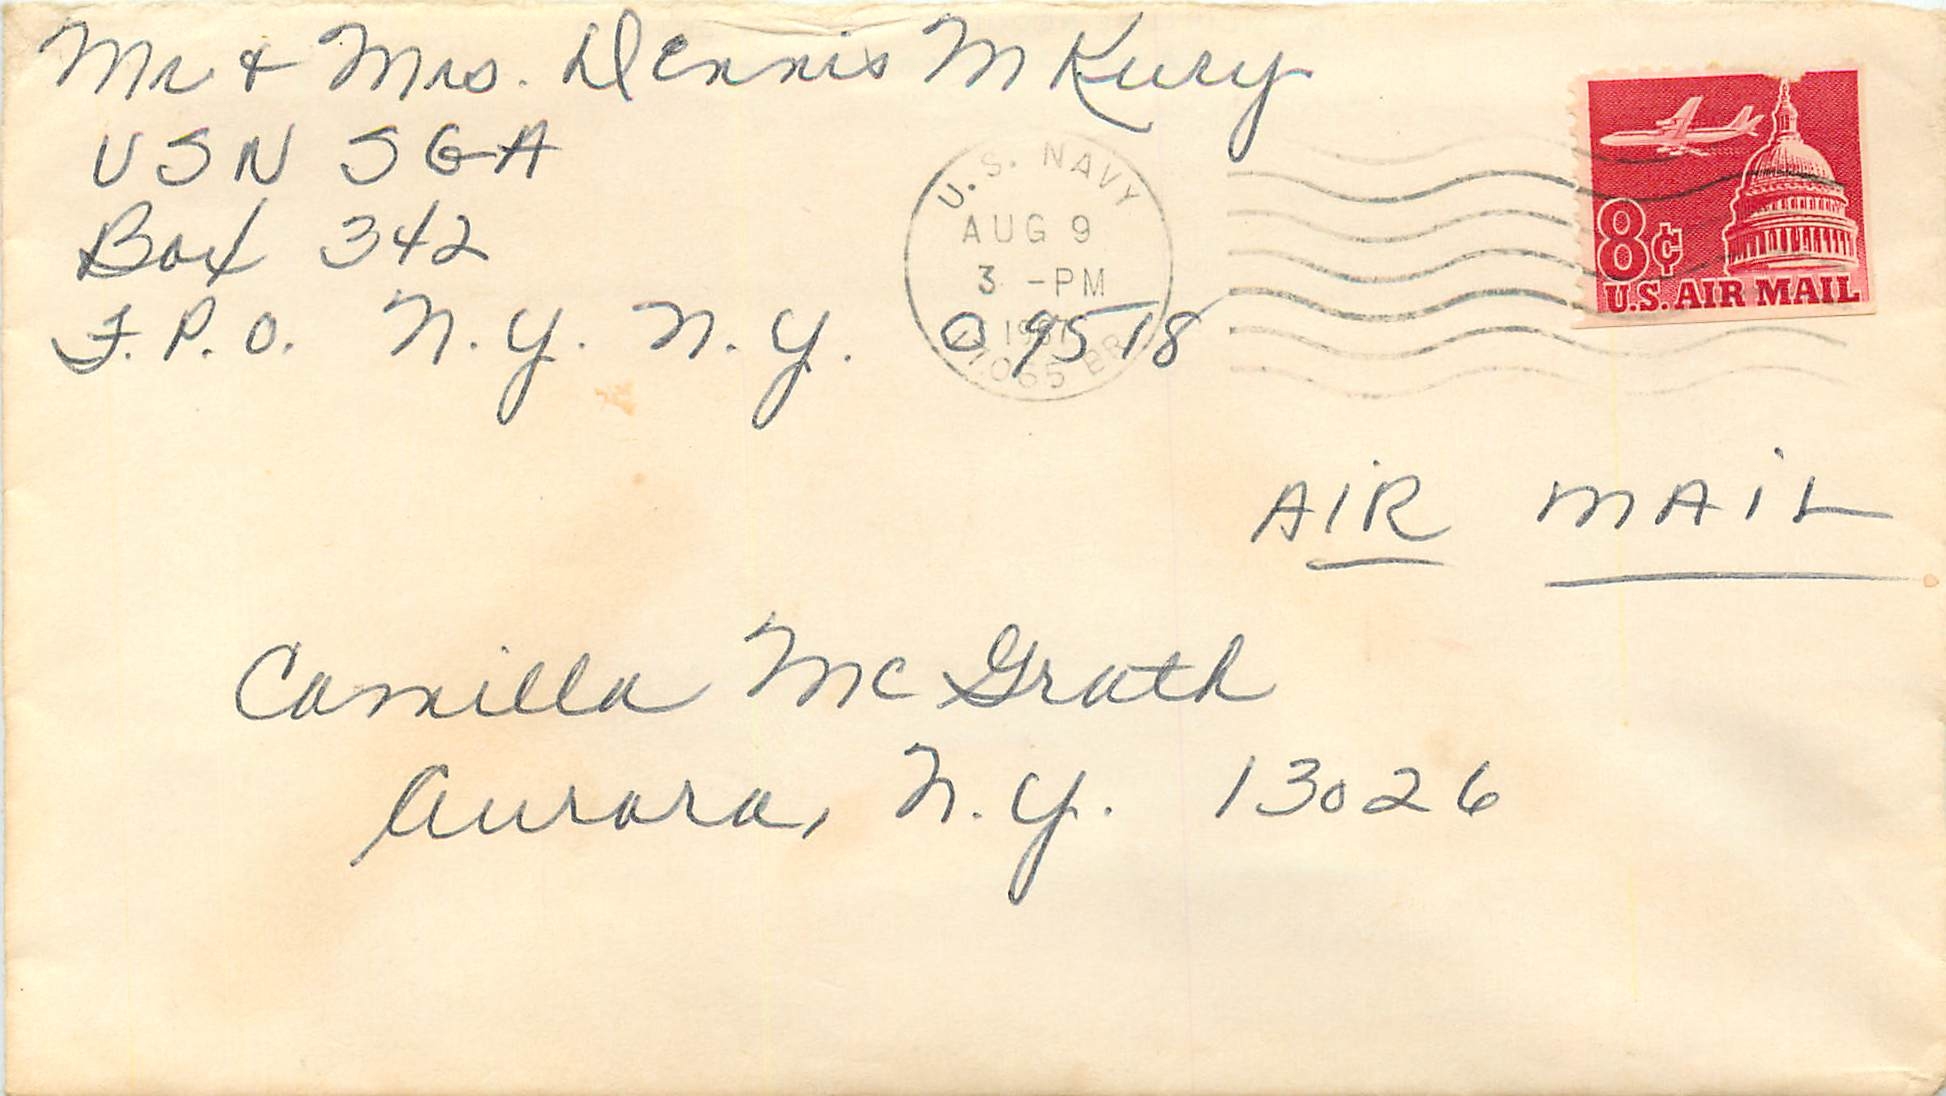 Mr & Mrs. Dennis M Kury
USN SGA
Box 342
F.P.O. N.Y. N.Y. 09518
U.S. NAVY
AUG 9
3 -PM
8¢
U.S. AIR MAIL
AIR MAIL
Camilla McGrath
Aurora, N.Y. 13026